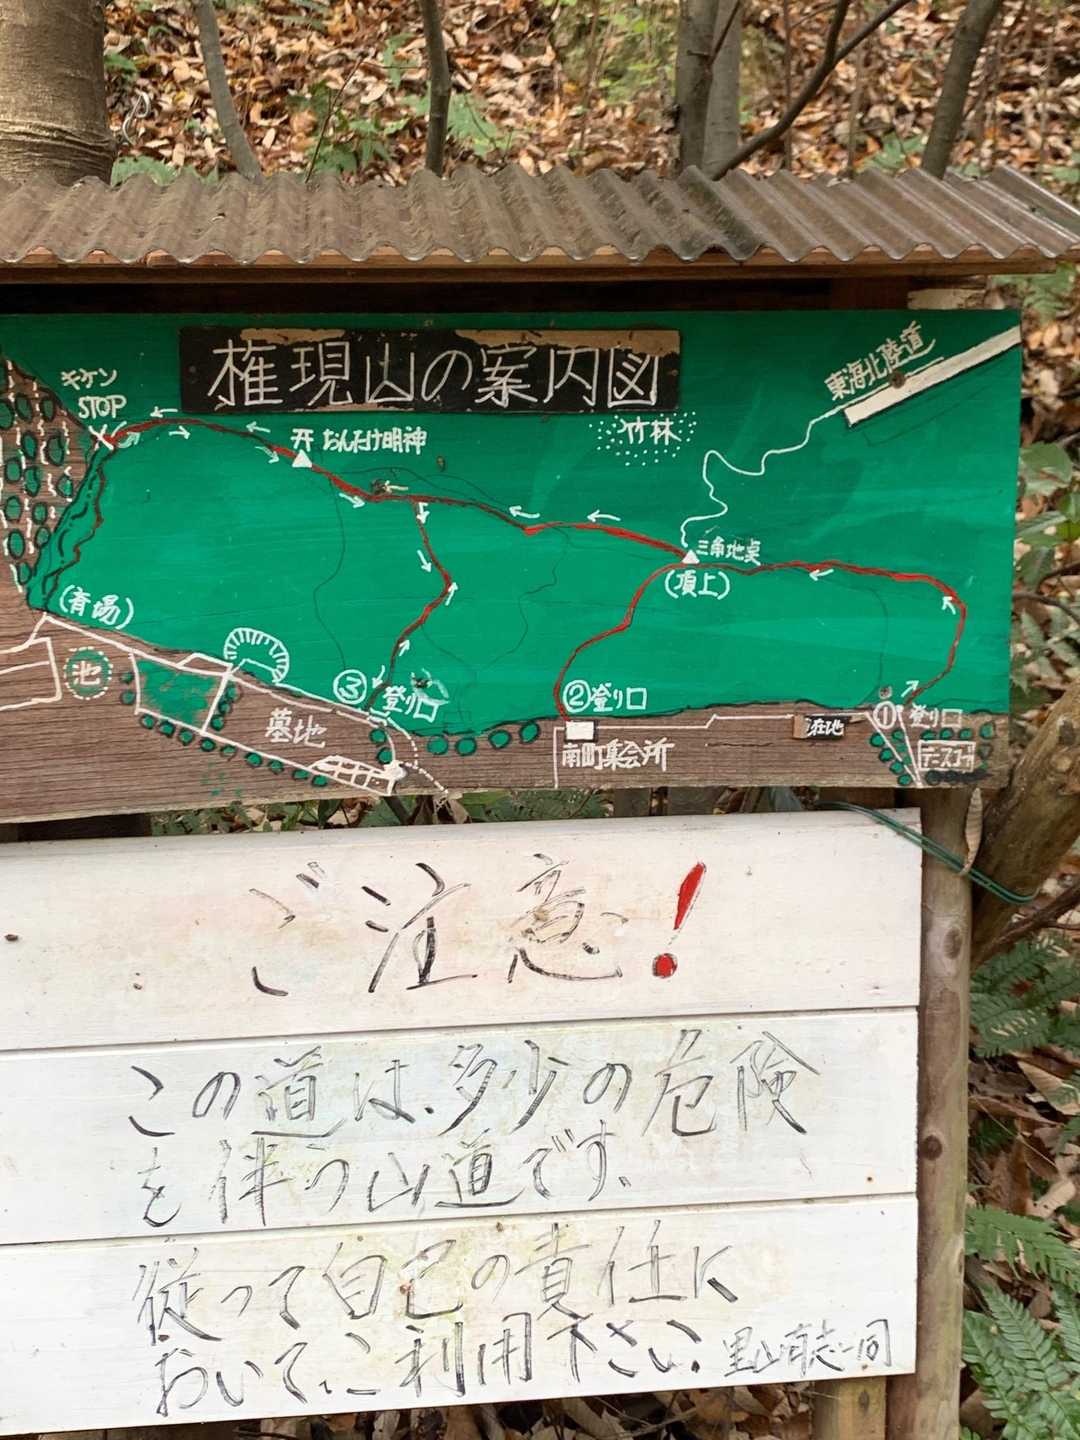 権現山の案内図
東海北陸道
キケン
STOP
おんたけ明神
竹林
三角地点
(頂上)
池
③登り口
②登り口
①登り口
墓地
南町集会所
現在地
テニスコート
ご注意!
この道は、多少の危険
を伴う山道です。
従って自己の責任に
おいて、ご利用下さい。里山有志一同